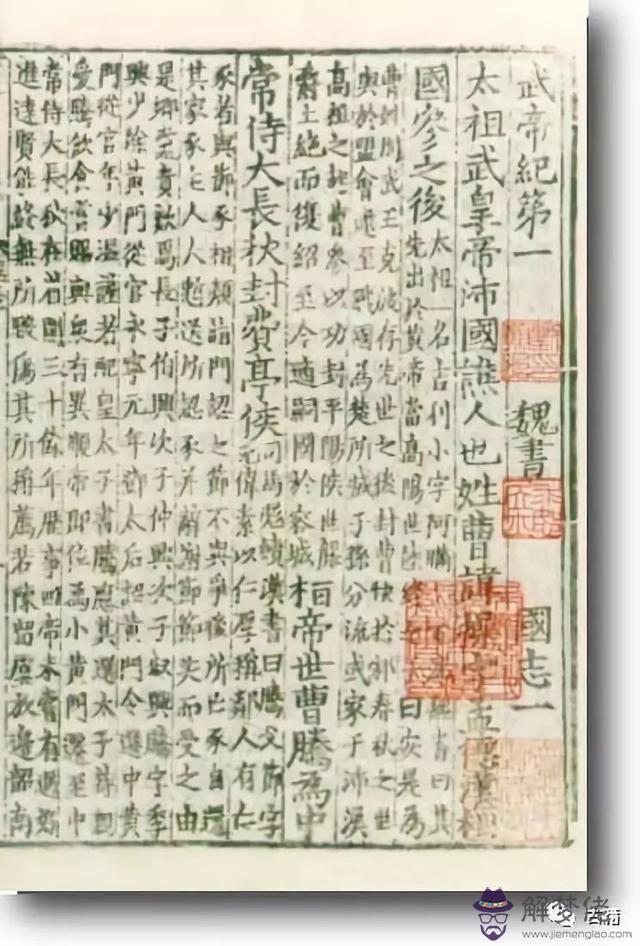 武帝紀第一 魏書 國志一
太祖武皇帝沛國譙人也姓曹諱操字孟德漢相
國參之後
太祖一名吉利小字阿瞞書曰其
先出於黃帝當高陽世陸終曰安是為
曹姓周武王克殷存先世之後封曹俠於邾春秋之世
與於盟會逮至戰國為楚所滅子孫分流或家于沛漢
高祖之起曹參以功封平陽侯世襲
爵土絕而復紹至今適嗣國於容城
桓帝世曹騰為中
常侍大長秋封費亭侯
司馬彪續漢書曰騰父節字
元偉素以仁厚稱鄰人有亡
豕者與節豕相類詣門認之節不與爭後所亡豕自還
其家豕主人大慙送所認豕并辭謝節節笑而受之由
是鄉黨貴歎焉長子伯興次子仲興次子叔興騰字季
興少除黃門從官永寧元年鄧太后詔黃門令選中黃
門從官年少溫謹者配皇太子書騰應其選太子特親
愛騰飲食賞賜與眾有異順帝即位為小黃門遷至中
常侍大長秋在省闥三十餘年歷事四帝未嘗有過好
進達賢能終無所毀傷其所稱薦若陳留虞放邊韶南
解梦佬
www.jiemenglao.com